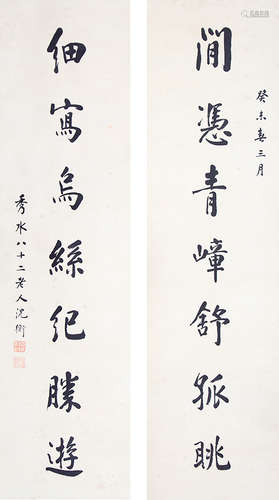 癸未春三月
閒憑青嶂舒孤眺
細寫烏絲紀勝遊
秀水八十二老人沈衛